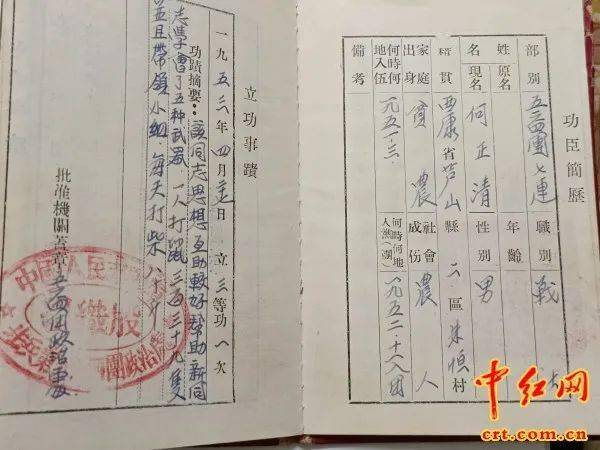 功臣簡歷
部別 五三四團七連 職別 戰士
姓名 原名 年齡
現名 何正清 性別 男
籍貫 西康省芦山縣二區 村
家庭出身 貧農 社會成份 農人
何時何地入伍 一九五一.三. 何時何地入黨(團) 一九五二.十八入团
備考
立功事蹟
一九五三年四月 日 立三等功一次
功蹟摘要：該同志思想互助較好幇助新同
志學會了五种武器 一人打鼠三百三十九隻
並且帶領小組每天打柴八十斤
批准機關蓋章 政治處
中国人民
中红网
crt.com.cn